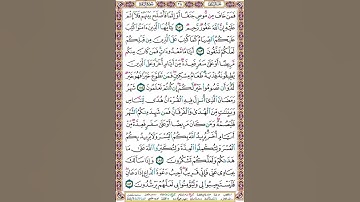 فَمَنْ خَافَ مِن مُّوصٍ جَنَفًا أَوْ إِثْمًا فَأَصْلَحَ بَيْنَهُمْ فَلَآ إِثْمَ
عَلَيْهِ إِنَّ ٱللَّهَ غَفُورٌ رَّحِيمٌ يَـٰٓأَيُّهَا ٱلَّذِينَ ءَامَنُوا۟ كُتِبَ
عَلَيْكُمُ ٱلصِّيَامُ كَمَا كُتِبَ عَلَى ٱلَّذِينَ مِن قَبْلِكُمْ
لَعَلَّكُمْ تَتَّقُونَ أَيَّامًا مَّعْدُودَٰتٍ فَمَن كَانَ مِنكُم
مَّرِيضًا أَوْ عَلَىٰ سَفَرٍ فَعِدَّةٌ مِّنْ أَيَّامٍ أُخَرَ وَعَلَى ٱلَّذِينَ
يُطِيقُونَهُۥ فِدْيَةٌ طَعَامُ مِسْكِينٍ فَمَن تَطَوَّعَ خَيْرًا فَهُوَ خَيْرٌ
لَّهُۥ وَأَن تَصُومُوا۟ خَيْرٌ لَّكُمْ إِن كُنتُمْ تَعْلَمُونَ شَهْرُ
رَمَضَانَ ٱلَّذِىٓ أُنزِلَ فِيهِ ٱلْقُرْءَانُ هُدًى لِّلنَّاسِ
وَبَيِّنَـٰتٍ مِّنَ ٱلْهُدَىٰ وَٱلْفُرْقَانِ فَمَن شَهِدَ مِنكُمُ ٱلشَّهْرَ
فَلْيَصُمْهُ وَمَن كَانَ مَرِيضًا أَوْ عَلَىٰ سَفَرٍ فَعِدَّةٌ مِّنْ
أَيَّامٍ أُخَرَ يُرِيدُ ٱللَّهُ بِكُمُ ٱلْيُسْرَ وَلَا يُرِيدُ بِكُمُ
ٱلْعُسْرَ وَلِتُكْمِلُوا۟ ٱلْعِدَّةَ وَلِتُكَبِّرُوا۟ ٱللَّهَ عَلَىٰ مَا
هَدَىٰكُمْ وَلَعَلَّكُمْ تَشْكُرُونَ وَإِذَا سَأَلَكَ
عِبَادِى عَنِّى فَإِنِّى قَرِيبٌ أُجِيبُ دَعْوَةَ ٱلدَّاعِ إِذَا دَعَانِ
فَلْيَسْتَجِيبُوا۟ لِى وَلْيُؤْمِنُوا۟ بِى لَعَلَّهُمْ يَرْشُدُونَ